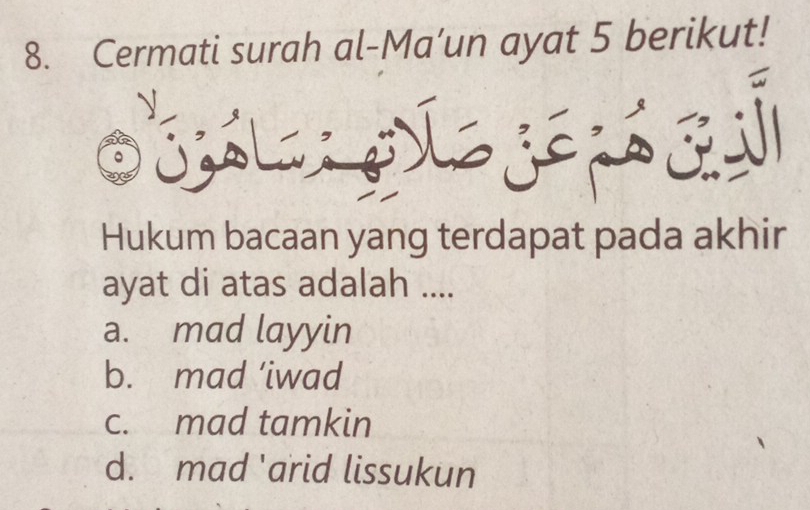 8. Cermati surah al-Ma'un ayat 5 berikut!
الَّذِيْنَ هُمْ عَنْ صَلَاتِهِمْ سَاهُوْنَۙ ۝٥
Hukum bacaan yang terdapat pada akhir
ayat di atas adalah ....
a. mad layyin
b. mad 'iwad
c. mad tamkin
d. mad 'arid lissukun